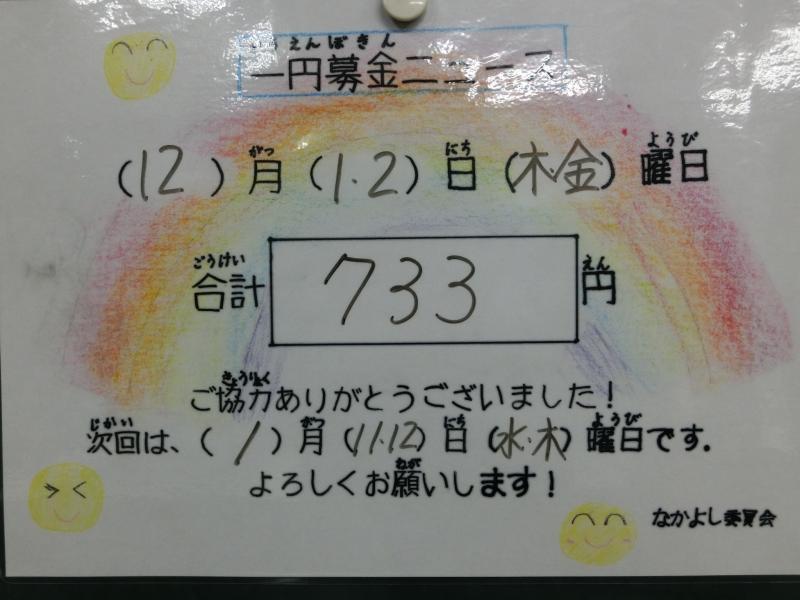 いちえんぼきん
一円募金ニュース
がつ にち ようび
(12)月(1・2)日(木・金)曜日
ごうけい えん
合計 733 円
きょうりょく
ご協力ありがとうございました！
じかい がつ にち ようび
次回は、(1)月(11・12)日(水・木)曜日です.
ねが
よろしくお願いします！
なかよし委員会